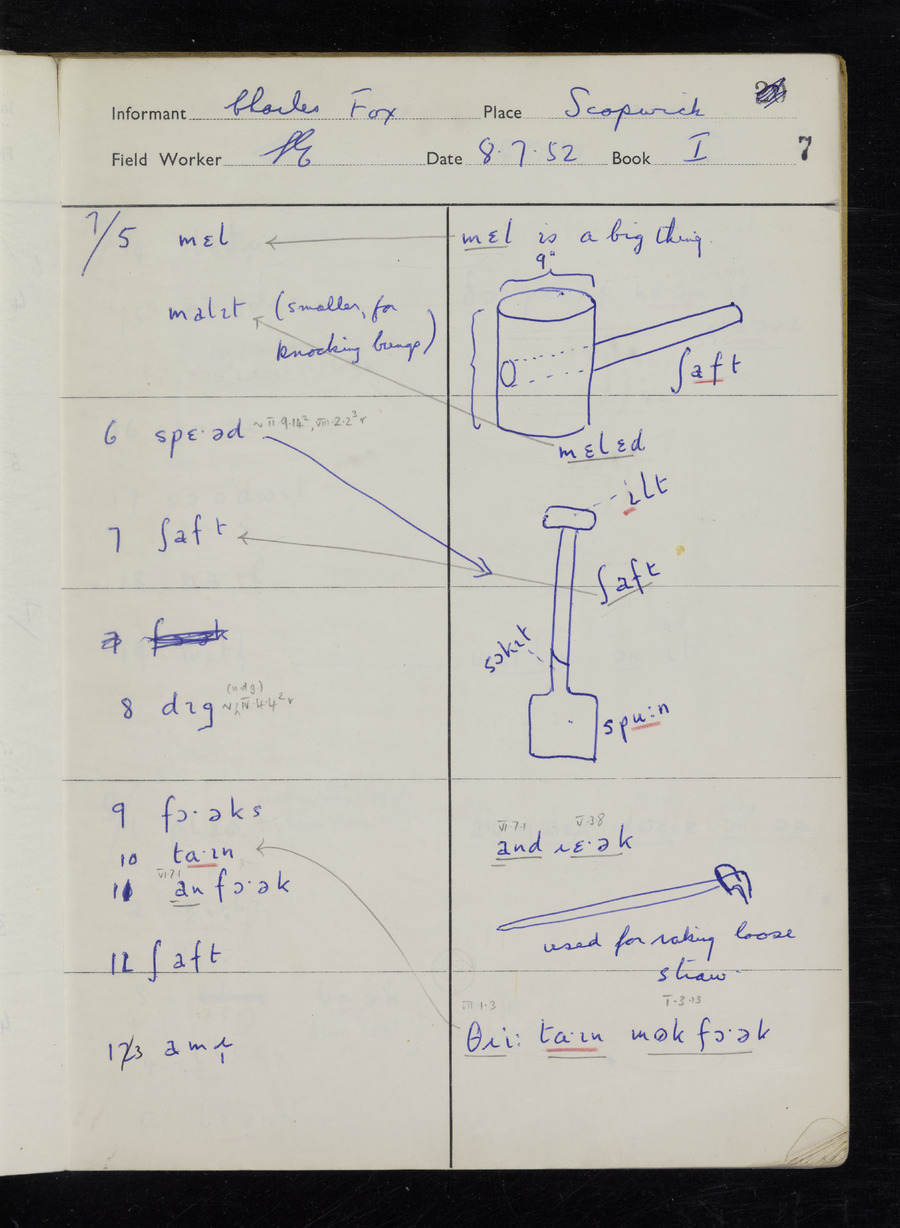 Informant Charles Fox Place Scopwick
Field Worker Date 8.7.52 Book I 7
7/5 mɛl
malɪt (smaller, for
knocking bungs)
6 spɛ·əd ~ II.9.14², VIII.2.2³ r
7 ʃaft
8 dɪg
9 fɔ·əks
10 ta·ɪn
VI.7.1
11 an fɔ·ək
12 ʃaft
13 amə
mɛl is a big thing.
9"
ʃaft
mɛlɛd
ɪlt
ʃaft
sɔkɪt
spu:n
VI.7.1 V.3.8
and ɹɛ·ək
used for raking loose
straw.
III.1.3 I.3.13
θɹi: ta·ɪn mʊk fɔ·ək